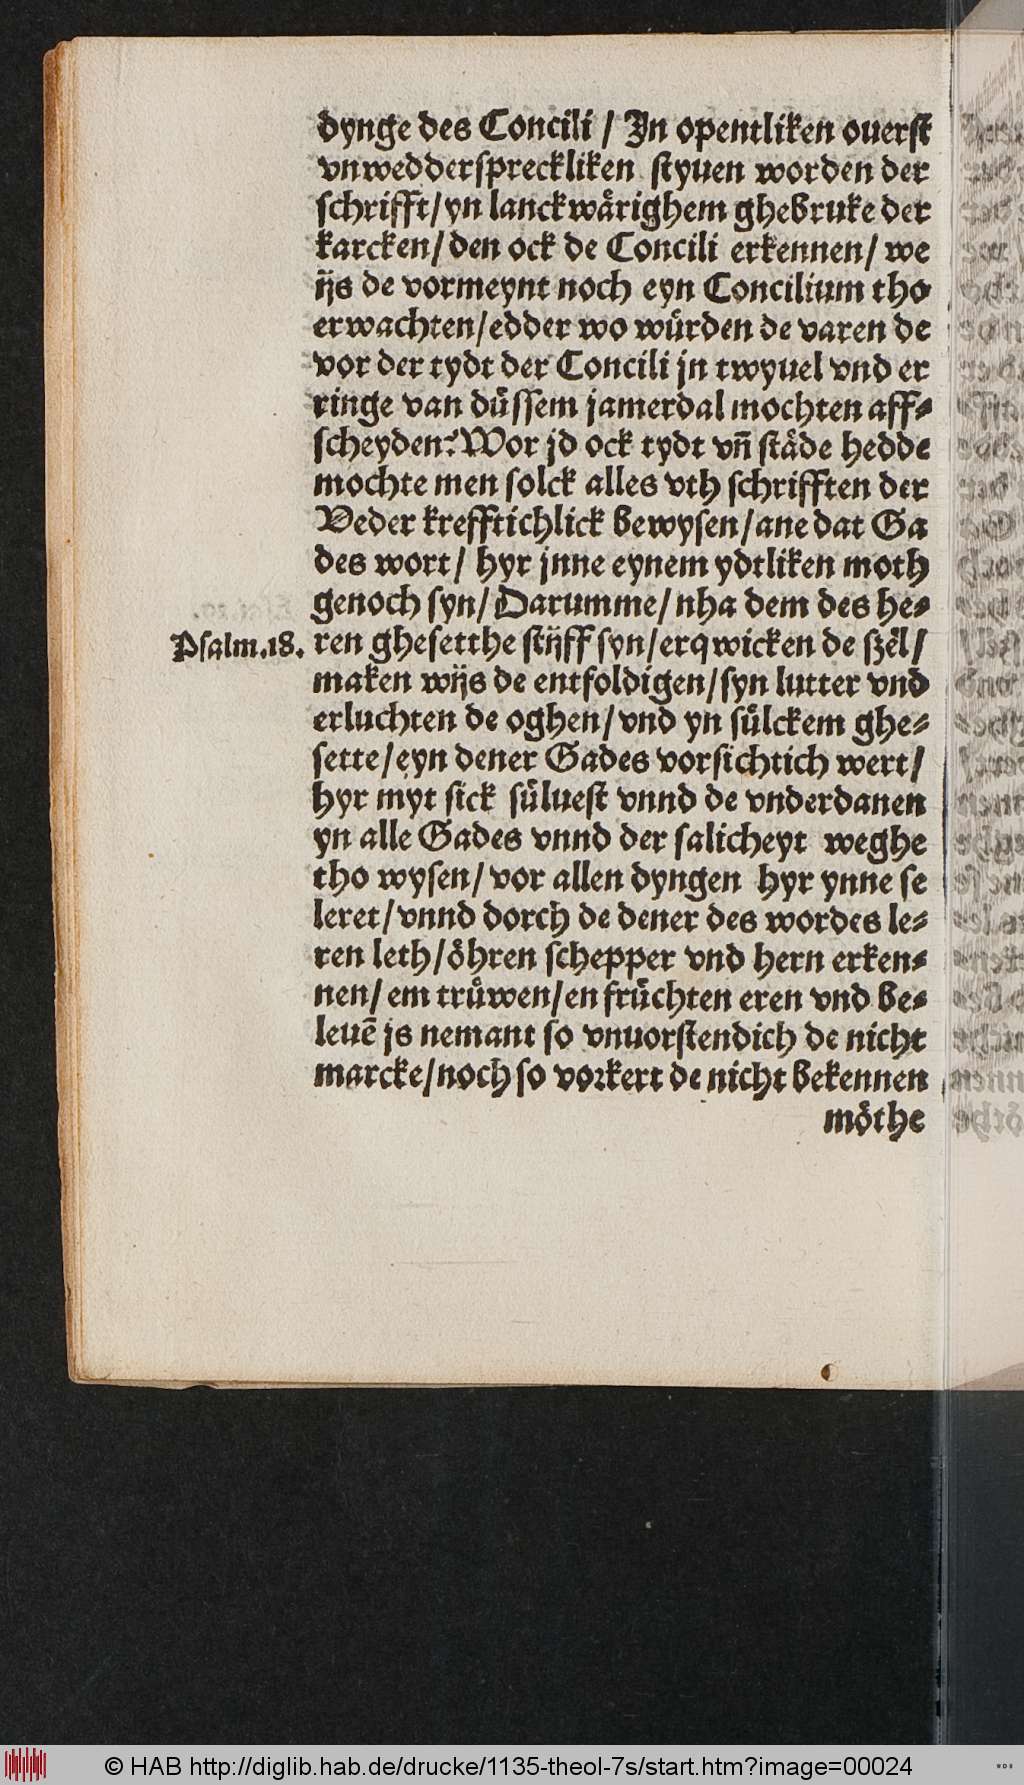 dynge des Concili / Jn opentliken ouerst
vnwedderspreckliken styuen worden der
schrifft/yn lanckwårighem ghebruke der
karcken/den ock de Concili erkennen/we
ijs de vormeynt noch eyn Concilium tho
erwachten/edder wo wuͤrden de varen de
vor der tydt der Concili jn twyuel vnd er
ringe van duͤssem jamerdal mochten aff⸗
scheyden? Wor jd ock tydt vn̄ ståde hedde
mochte men solck alles vth schrifften der
Veder krefftichlick bewysen/ane dat Ga
des wort/ hyr jnne eynem ydtliken moth
genoch syn/Darumme/nha dem des he⸗
Psalm.18. ren ghesetthe stijff syn/erqwicken de szel/
maken wijs de entfoldigen/syn lutter vnd
erluchten de oghen/vnd yn suͤlckem ghe⸗
sette/eyn dener Gades vorsichtich wert/
hyr myt sick suͤluest vnnd de vnderdanen
yn alle Gades vnnd der salicheyt weghe
tho wysen/vor allen dyngen hyr ynne se
leret/vnnd dorch de dener des wordes le⸗
ren leth/oͤhren schepper vnd hern erken⸗
nen/em truͤwen/en fruͤchten eren vnd be⸗
leuē js nemant so vnuorstendich de nicht
marcke/noch so vorkert de nicht bekennen
moͤthe
© HAB http://diglib.hab.de/drucke/1135-theol-7s/start.htm?image=00024